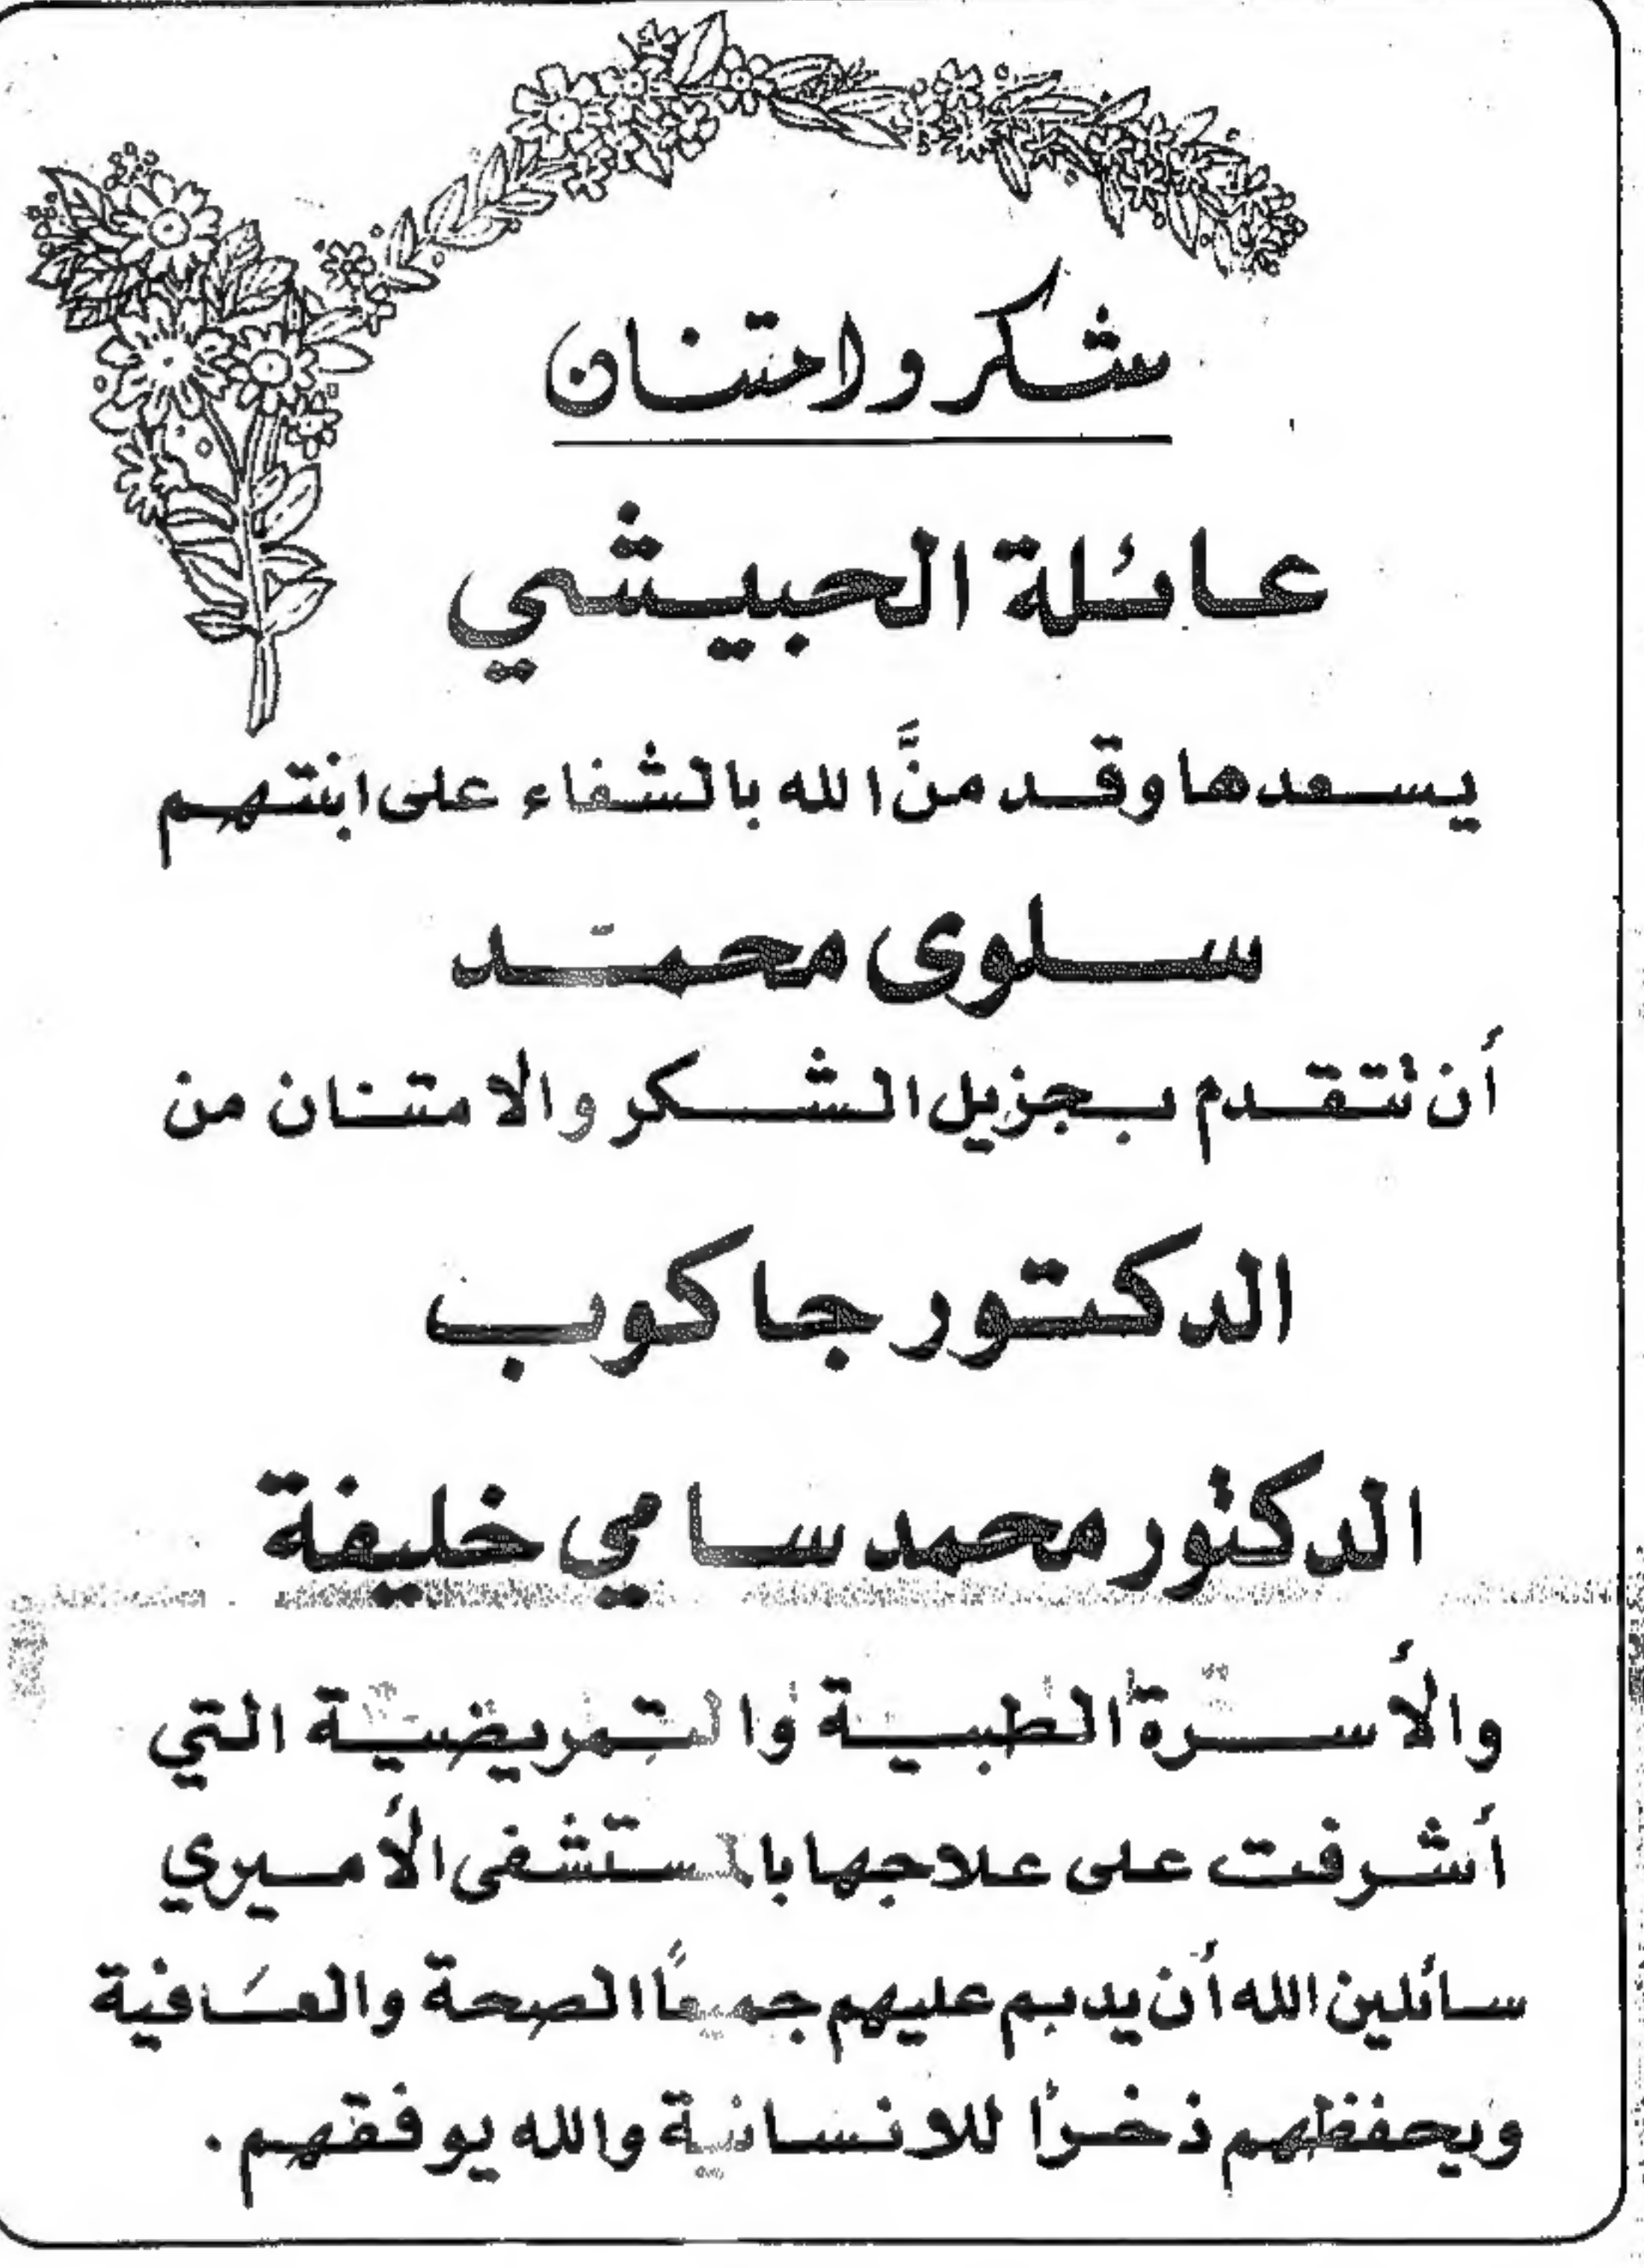 شكر وامتنان
عائلة الحبيشي
يسعدها وقد منَّ الله بالشفاء على ابنتهم
سلوى محمّد
أن تتقدم بجزيل الشكر والامتنان من
الدكتور جاكوب
الدكتور محمد سامي خليفة
والأسرّة الطبية والتمريضية التي
أشرفت على علاجها بالمستشفى الأميري
سائلين الله أن يديم عليهم جميعًا الصحة والعَافية
ويحفظهم ذخرًا للانسانية والله يوفقهم.